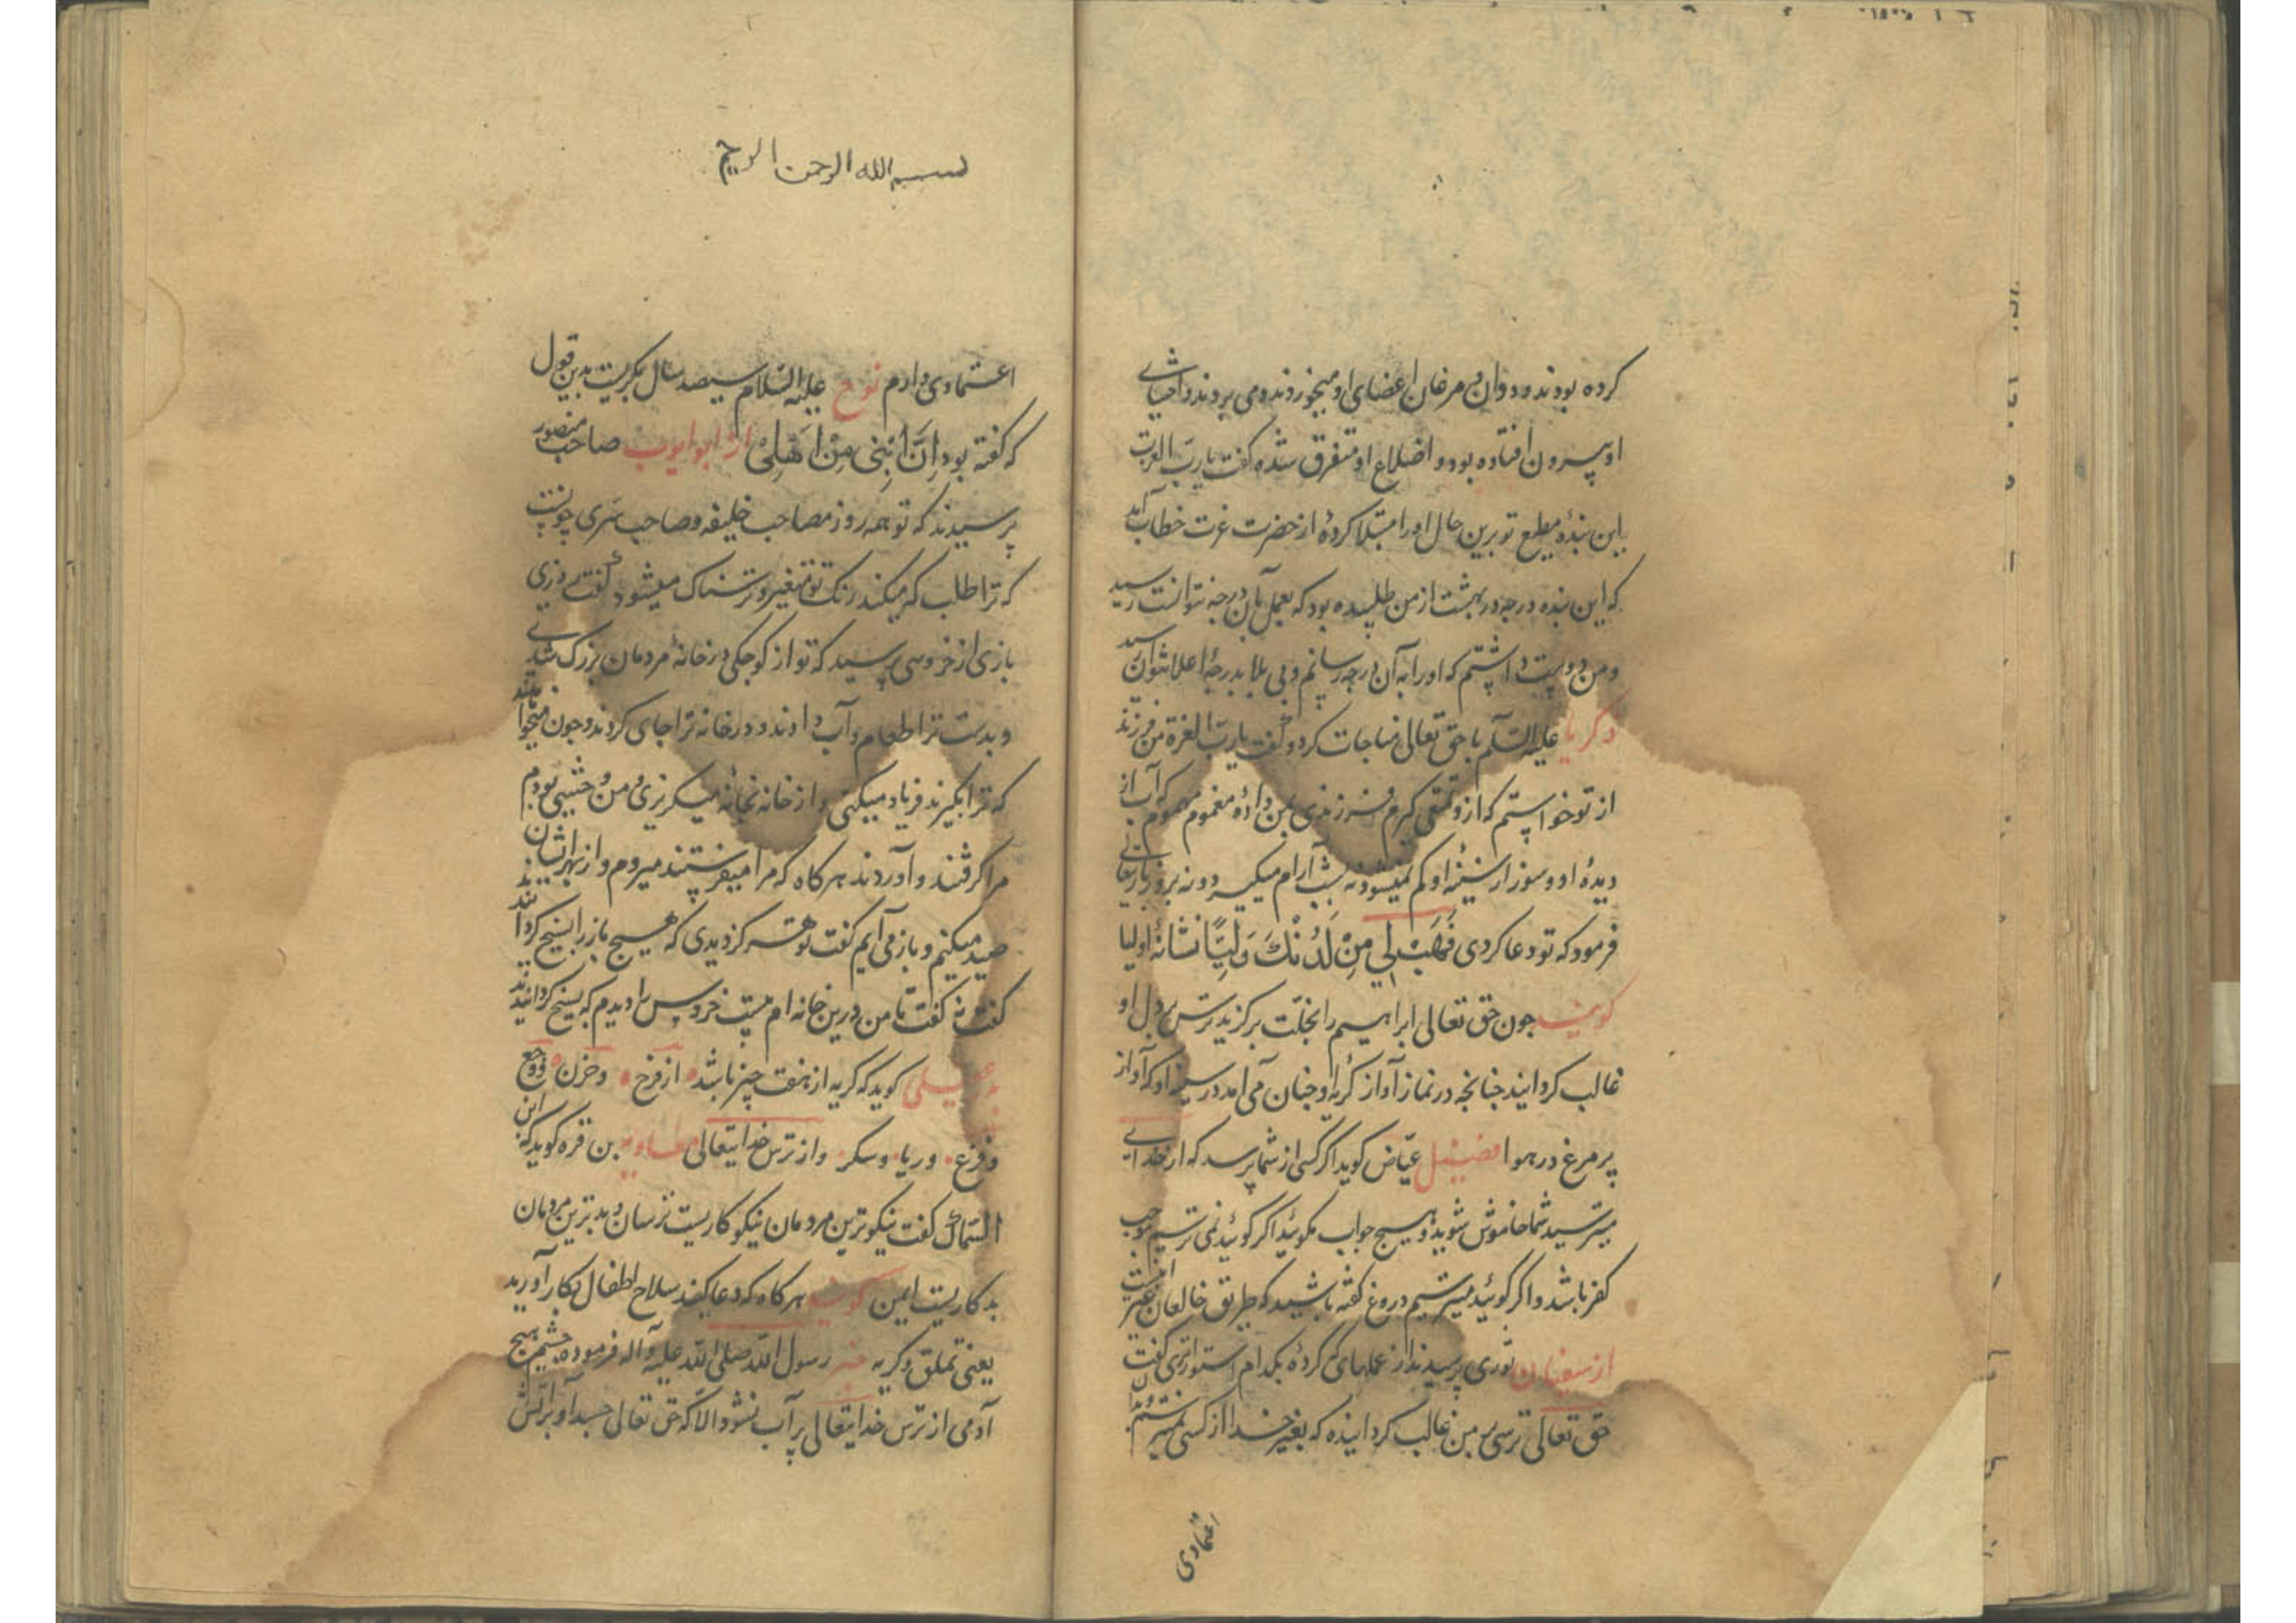 کرده بودند و ددوان و مرغان اعضای او میخوردند و می بردند و احشای
او بیرون افتاده بود و اضلاع او متفرق شده گفت یا رب العزت
این بندهٔ مطیع تو برین حال او را مبتلا کردهٔ از حضرت عزت خطاب آمد
که این بنده درجه در بهشت از من طلبیده بود که بعمل بآن درجه نتوانست رسید
و من دوست داشتم که او را به آن درجه رسانم و بی بلا بدرجهٔ اعلا نتوان رسید
ذکریا علیه السلام با حق تعالی مناجات کرد و گفت یا رب العزة من فرزند
از تو خواستم که ازو تمتعی گیرم فرزندی بمن دادهٔ مغموم مهموم که آب از
دیدهٔ او و سوز از سینهٔ او کم نمیشود نه بشب آرام میگیرد و نه بروز باریتعالی
فرمود که تو دعا کردی فَهَبْ لِي مِنْ لَدُنْكَ وَلِيًّا نشانهٔ اولیا
گویند چون حق تعالی ابراهیم را بخلت برگزید ترس بر دل او
غالب گردانید چنانچه در نماز آواز گریهٔ او چنان می آمد در سینهٔ او که آواز
پر مرغ در هوا فضیل عیاض گوید اگر کسی از شما پرسد که از خدای
میترسید شما خاموش شوید و هیچ جواب مگوئید اگر گوئید نمی ترسیم موجب
کفر باشد و اگر گوئید میترسیم دروغ گفته باشید که طریق خائفان غیر اینست
از سفیان ثوری پرسیدند از عملهای که کردهٔ بکدام استوارتری گفت
حق تعالی ترسی بر من غالب گردانیده که بغیر خدا از کسی نمیترسم و بدان
اعتمادی
بسم الله الرحمن الرحیم
اعتمادی دارم نوح علیه السلام سیصد سال بگریست بدین قول
که گفته بود إِنَّ ابْنِي مِنْ أَهْلِي از ابو ایوب صاحب منصور
پرسیدند که تو همه روز مصاحب خلیفه و صاحب سری چونست
که ترا طلب که میکند رنگ تو متغیر و ترسناک میشود گفت روزی
بازی از خروسی پرسید که تو از کوچکی در خانهٔ مردمان بزرگ شدی
و بدست ترا طعام و آب دادند و در خانه ترا جای کردند و چون میخواهند
که ترا بگیرند فریاد میکنی و از خانه بخانه میگریزی و من وحشی بودم
مرا گرفتند و آوردند هر گاه که مرا میفرستند میروم و از بهر ایشان
صید میکنم و باز می آیم گفت تو هرگز دیدی که هیچ باز را بسیخ کردند
گفت نه گفت تا من درین خانه ام بیست خروس را دیدم که بسیخ گردانیدند
گوید که گریه از هفت چیز باشد از فرح و حزن و وجع
و فزع و ریا و سکر و از ترس خدایتعالی معاویه بن قره گوید که ابن
السماک گفت نیکوترین مردمان نیکو کاریست ترسان و بدترین مردمان
بدکاریست ایمن گویند هر گاه که دعا کنید سلاح اطفال بکار آورید
یعنی تملق و گریه رسول الله صلی الله علیه و آله فرموده چشم هیچ
آدمی از ترس خدایتعالی پر آب نشود الا که حق تعالی جسد او بر آتش